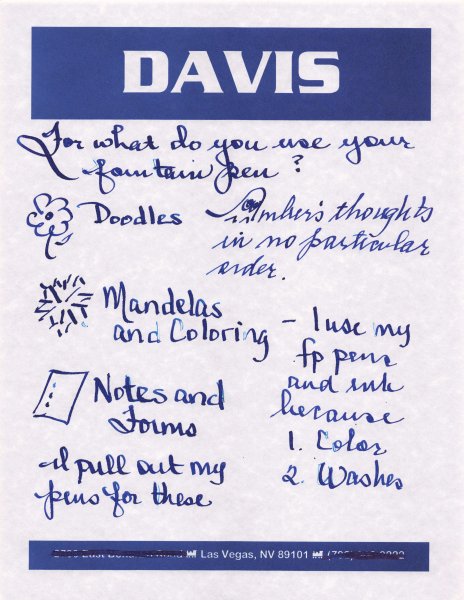 DAVIS
For what do you use your
fountain pen?
Doodles
Amber's thoughts
in no particular
order.
Mandelas
and Coloring
- I use my
fp pens
and ink
because
1. Color
2. Washes
Notes and
Forms
I pull out my
pens for these
Las Vegas, NV 89101